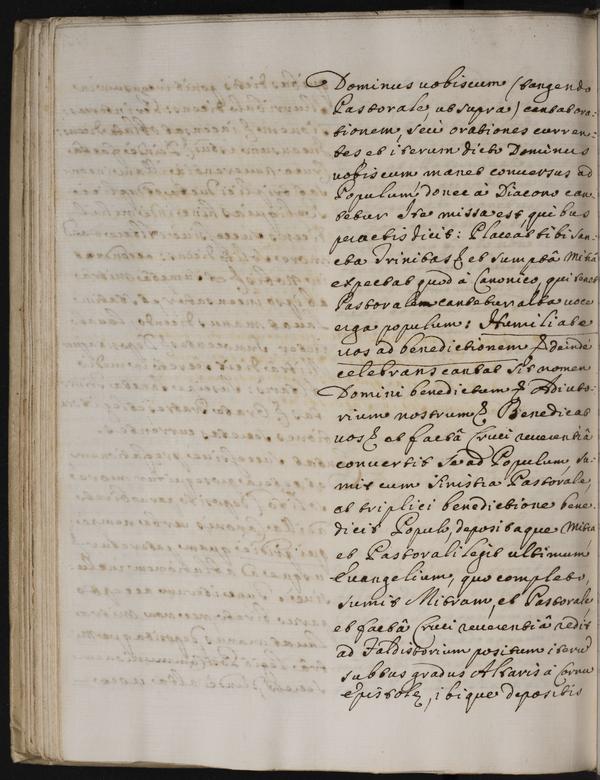 Dominus vobiscum (tangendo
Pastorale, ut supra) cantat ora-
tionem, seu orationes curren-
tes et iterum dicto Dominus
vobiscum manet conversus ad
Populum, donec à Diacono can
tetur Ite missa est, quibus
peractis dicit: Placeat tibi San-
cta Trinitas & et sumptâ Mitrâ
expectat quod à Canonico, qui tenet
Pastoralem cantetur alta voce
erga populum: Humiliate
vos ad benedictionem & deinde
celebrans cantat Sit nomen
Domini benedictum & Adiuto-
rium nostrum & Benedicat
vos & et factâ Cruci reverentiâ
convertit se ad Populum, su-
mit cum sinistra Pastorale,
at triplici benedictione bene-
dicit Populo, depositaque Mitra
et Pastorali legit ultimum
Evangelium, quo completo,
sumit Mitram, et Pastorale,
et factâ Cruci reverentiâ redit
ad Faldistorium positum iterũ
subtus gradus Altaris à Cornu
Epistolæ, ibique depositis